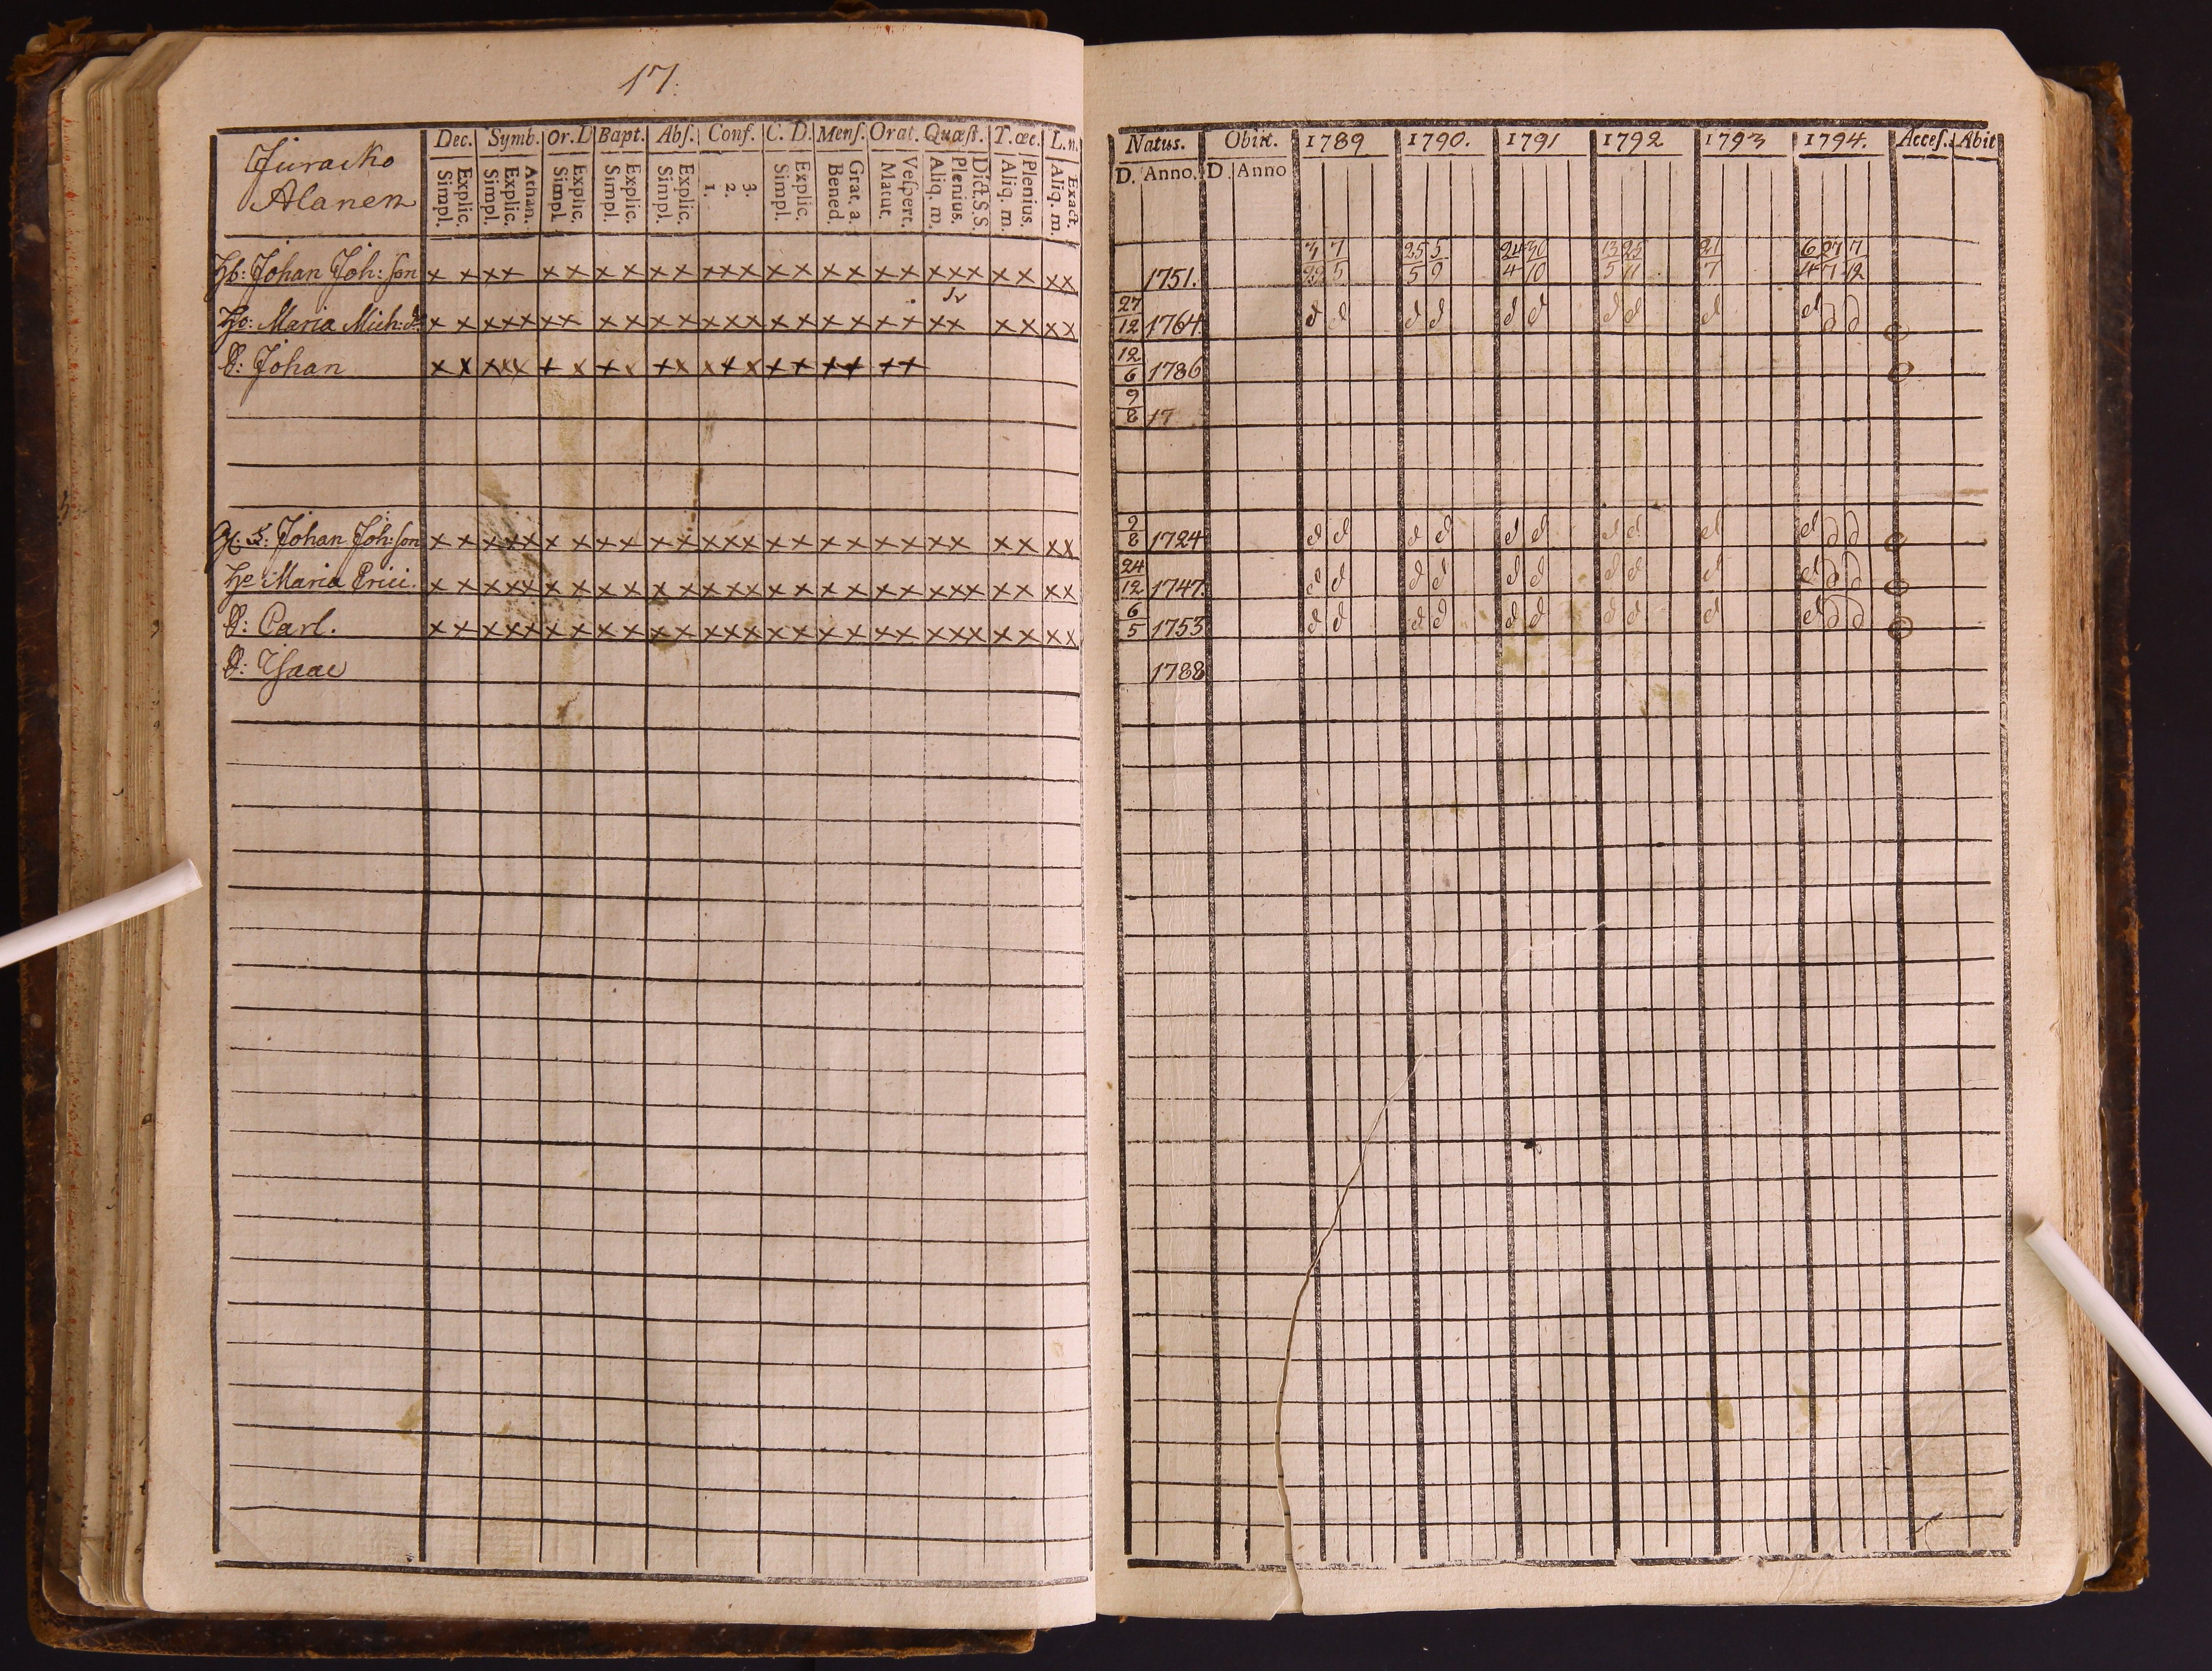 17.
Juracko
Alanen
Dec. Symb. Or. D Bapt. Abſ. Conf. C. D. Menſ. Orat. Quæſt. T. œc. L. n.
Simpl. Explic. Simpl. Explic. Athan. Simpl. Explic. Simpl. Explic. Simpl. Explic. 1. 2. 3. Simpl. Explic. Bened. Grat. a. Matut. Veſpert. Aliq. m. Plenius. Dict. S. S. Aliq. m. Plenius. Aliq. m. Exact.
Hb: Johan Joh: ſon x x xx x x x x x x xxx x x x x x x xxx x x xx
Maria Mich: d. x x xxx xx x x x x xxx x x x x x x xx xx xx
S: Johan x x xxx x x x x x x x x x x x x x x x
Johan Joh: ſon x x xxxx x x x x x x xxx x x x x x x xx x x xx
Maria Erici. x x xxxx x x x x x x xxx x x x x x x xxx x x xx
S: Carl. x x xxxx x x x x x x xxx x x x x x x xxx x x xx
S: Iſaac
Natus. Obiit. 1789 1790. 1791 1792 1793 1794. Acceſ. Abit
D. Anno. D. Anno
1751. 25/5 5/9 24/4 30/10 13/5 25/11 21/7 6/4 27/7 7/12
27/12 1764
12/6 1786
9/8 17
2/8 1724
24/12 1747.
6/5 1753
1788